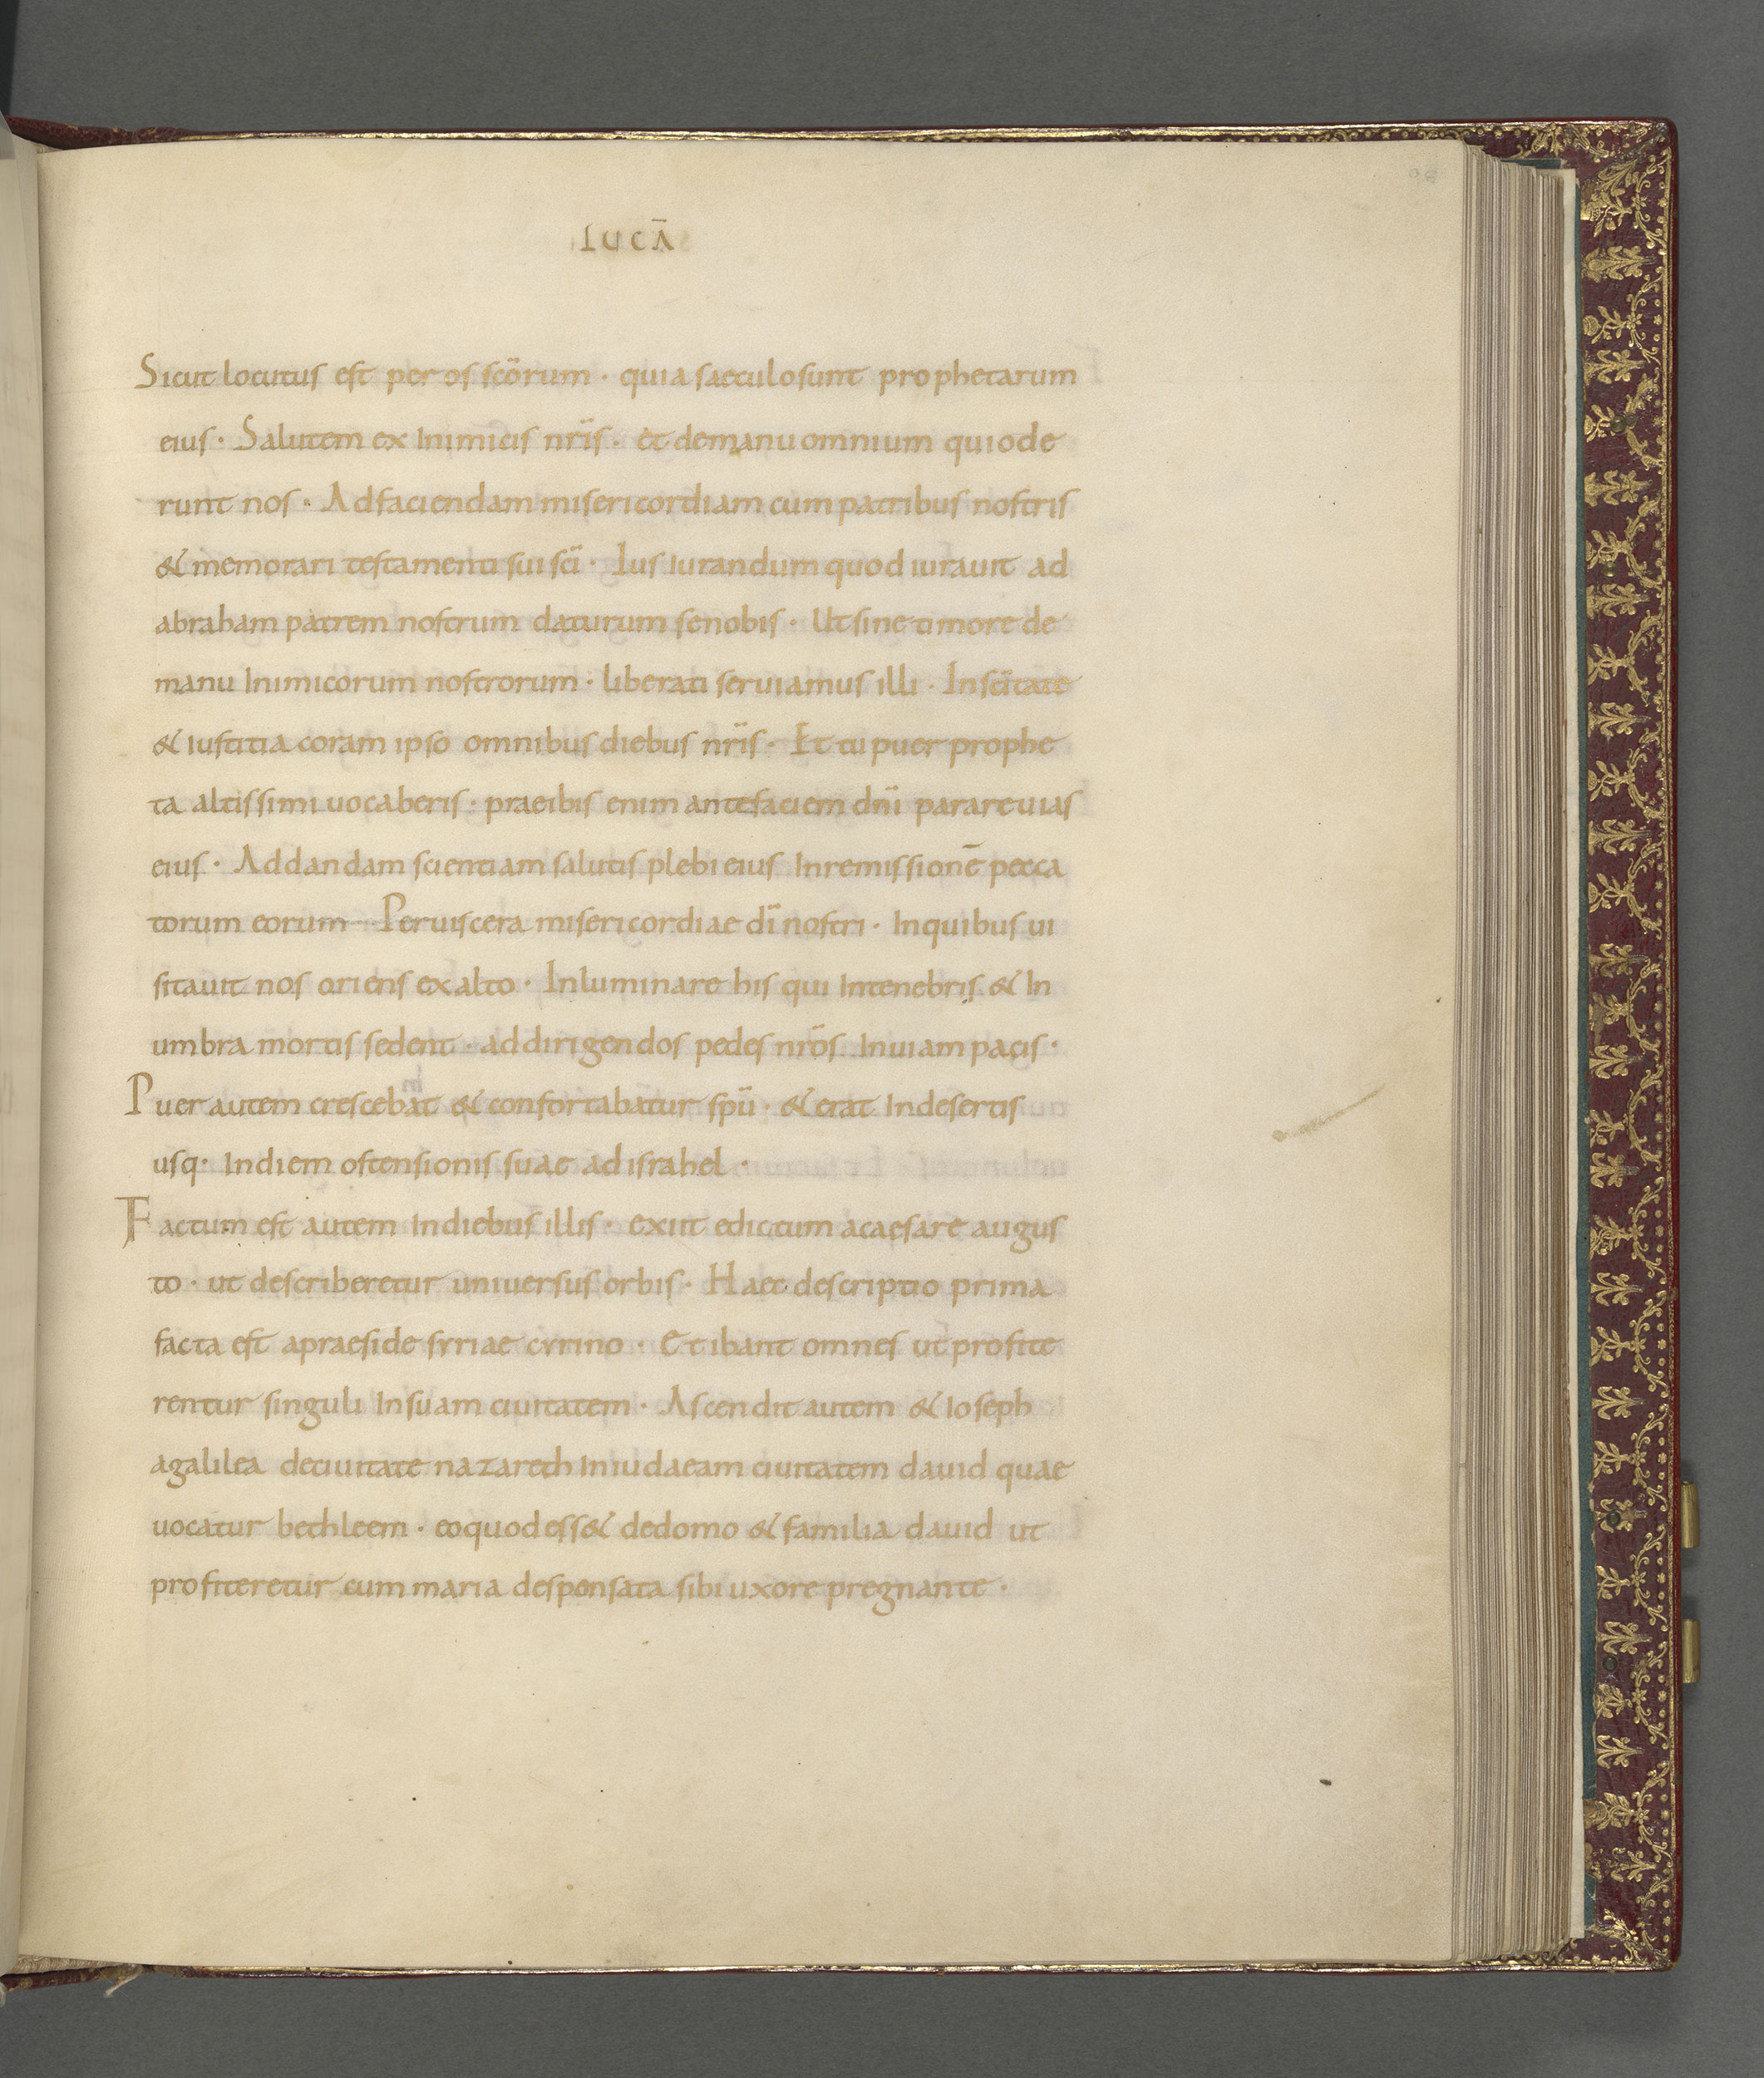 LUCĀ
Sicut locutus est per os scōrum · quia saeculo sunt prophetarum
eius · Salutem ex inimicis nr̄is · et de manu omnium qui ode
runt nos · Ad faciendam misericordiam cum patribus nostris
& memorari testamenti sui sc̄i · Ius iurandum quod iurauit ad
abraham patrem nostrum daturum se nobis · Ut sine timore de
manu inimicorum nostrorum · liberati seruiamus illi · In sc̄itate
& iustitia coram ipso omnibus diebus nr̄is · Et tu puer prophe
ta altissimi uocaberis · praeibis enim ante faciem dn̄i parare uias
eius · Ad dandam scientiam salutis plebi eius In remissionē pecca
torum eorum · Per uiscera misericordiae dī nostri · In quibus ui
sitauit nos oriens ex alto · Inluminare his qui In tenebris & In
umbra mortis sedent · ad dirigendos pedes nr̄os In uiam pacis ·
Puer autem crescebat & confortabatur sp̄u · & erat In desertis
usq· In diem ostensionis suae ad israhel ·
Factum est autem In diebus illis · exiit edictum a caesare augus
to · ut describeretur uniuersus orbis · Haec descriptio prima
facta est a praeside syriae cyrino · Et ibant omnes ut profite
rentur singuli In suam ciuitatem · Ascendit autem & Ioseph
a galilea de ciuitate nazareth In iudaeam ciuitatem dauid quae
uocatur bethleem · eo quod ess& de domo & familia dauid ut
profiteretur cum maria desponsata sibi uxore pregnante ·